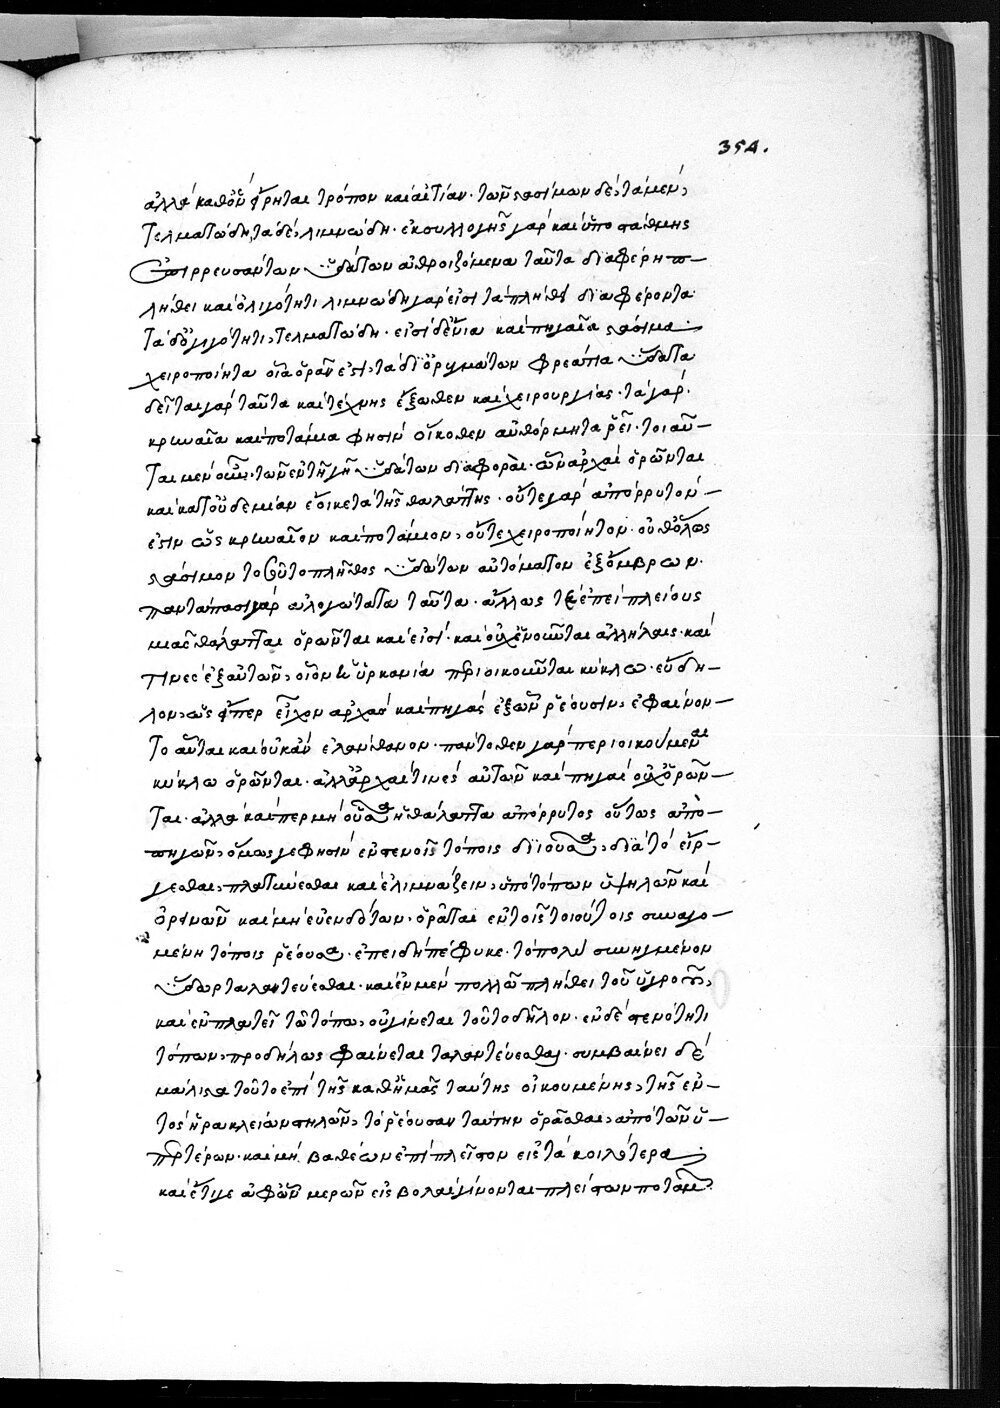 354.
ἀλλὰ καθ' ὃν εἴρηται τρόπον καὶ αἰτίαν. τῶν στασίμων δὲ, τὰ μὲν,
τελματώδη, τὰ δὲ, λιμνώδη. ἐκ συλλογῆς γὰρ καὶ ὑποστάθμης
ἐπιρρευσάντων ὑδάτων ἀθροιζόμενα ταῦτα διαφέρη π-
λήθει καὶ ὀλιγότητι λιμνώδη γάρ εἰσι τὰ πλήθει διαφέροντα
τὰ δ' ὀλιγότητι, τελματώδη. εἰσὶ δ' ἔνια καὶ πηγαῖα στάσιμα
χειροποίητα οἷα ὁρᾶν ἐστι, τὰ δι' ὀρυγμάτων φρεάτια ὕδατα
δεῖται γὰρ ταῦτα καὶ τέχνης ἔξωθεν καὶ χειρουργίας. τὰ γὰρ
κρηναῖα καὶ ποτάμια φησὶν οἴκοθεν αὐθόρμητα ῥεῖ. τοιαῦ-
ται μὲν οὖν, τῶν ἐν τῇ γῇ ὑδάτων διαφοραὶ. ὧν ἀρχαὶ ὁρῶνται
καὶ κατ' οὐδεμίαν ἔοικε τὰ τῆς θαλάττης. οὔτε γὰρ ἀπόρρυτόν
ἐστιν ὡς κρηναῖον καὶ ποτάμιον, οὔτε χειροποίητον. οὐθ' ὅλως
στάσιμον τοσοῦτο πλῆθος ὑδάτων αὐτόματον ἐξ ὄμβρων.
πανταπασι γὰρ ἀλογώτατα ταῦτα. ἄλλως τε ἐπεὶ πλείους
μιᾶς θάλατται ὁρῶνται καὶ εἰσὶ. καὶ οὐχ ἑνοῦνται ἀλλήλαις. καὶ
τινὲς ἐξ αὐτῶν, οἷον ἡ ὑρκανία περιοικοῦνται κύκλω. εὔδη-
λον, ὡς εἴπερ εἶχον ἀρχὰς καὶ πηγὰς ἐξ ὧν ῥέουσιν, ἐφαίνον-
το αὗται καὶ οὐκ ἂν ἐλάνθανον. πάντοθεν γὰρ περιοικούμεναι
κύκλω ὁρῶνται. ἀλλ' ἀρχαί τινες αὐτῶν καὶ πηγαὶ οὐχ ὁρῶν-
ται. ἀλλὰ καίπερ μὴ οὖσα ἡ θάλαττα ἀπόρρυτος οὕτως ἀπὸ
πηγῶν, ὅμως γε φησὶν ἐν στενοῖς τόποις διιοῦσα, διὰ τὸ εἴρ-
γεσθαι, πλατύνεσθαι καὶ ἐλιμνάζειν, ὑπὸ τόπων ὑψηλῶν καὶ
ὀρεινῶν καὶ μὴ εὐενδότων. ὁρᾶται ἐν τοῖς τοιούτοις συναγο-
μένη τόποις ῥέουσα. ἐπειδὴ πέφυκε. τὸ πολὺ συνηγμένον
ὕδωρ ταλαντεύεσθαι. καὶ ἐν μὲν πολλῶ πλήθει τοῦ ὑγροῦ,
καὶ ἐν πλατεῖ τῶ τόπω, οὐ γίνεται τοῦτο δῆλον. ἐν δὲ στενότητι
τόπων, προδήλως φαίνεται ταλαντεύεσθαι. συμβαίνει δὲ
μάλιστα τοῦτο ἐπὶ τῆς καθ' ἡμᾶς ταύτης οἰκουμένης, τῆς ἐν-
τὸς ἡρακλείων στηλῶν, τὸ ῥέουσαν ταύτην ὁρᾶσθαι, ἀπὸ τῶν ὑ-
περτέρων. καὶ μὴ βαθέων ἐπὶ πλεῖστον εἰς τὰ κοιλότερα
καὶ ἔτι γε ἀφ' ὧν μερῶν εἰσβολαὶ γίνονται πλείστων ποταμῶν